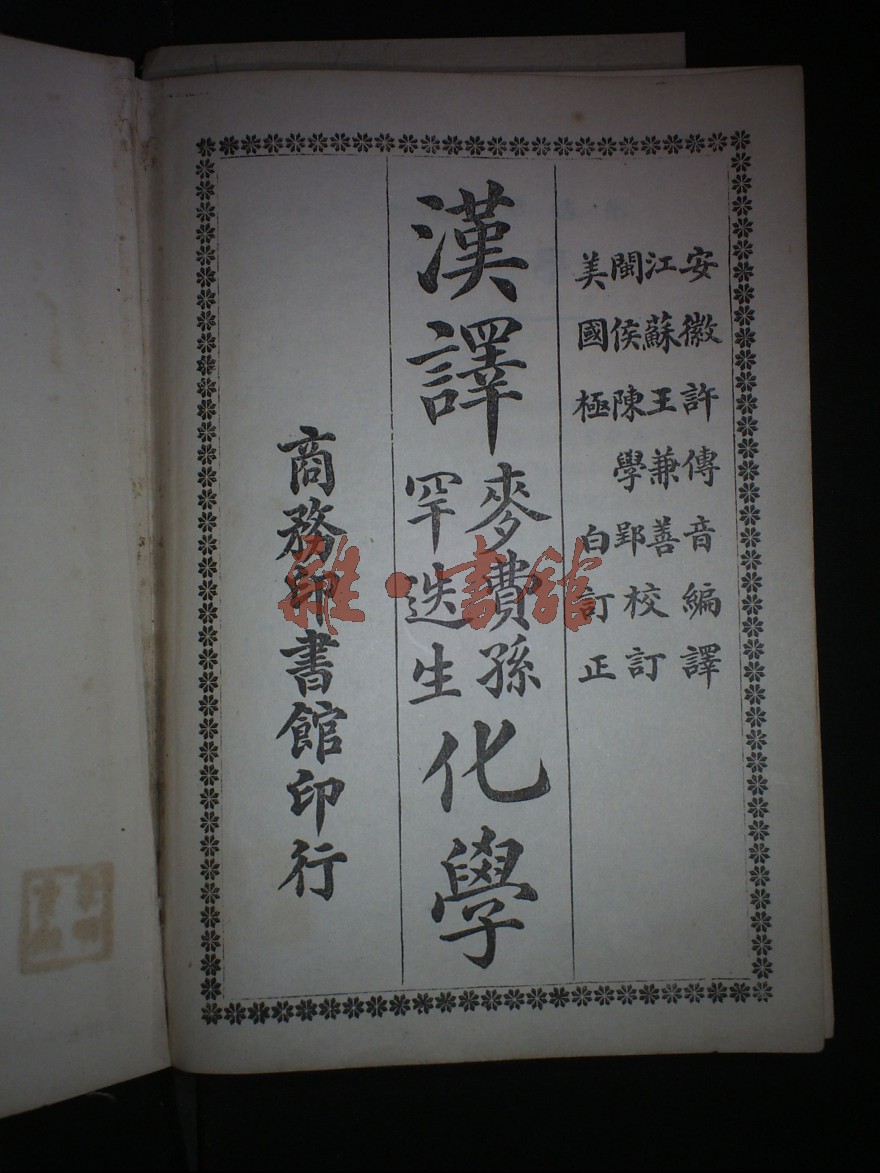 安徽許傳音編譯
江蘇王兼善校訂
閩侯陳學郢
美國極白訂正
漢譯麥費孫罕迭生化學
商務印書館印行
雜·書館